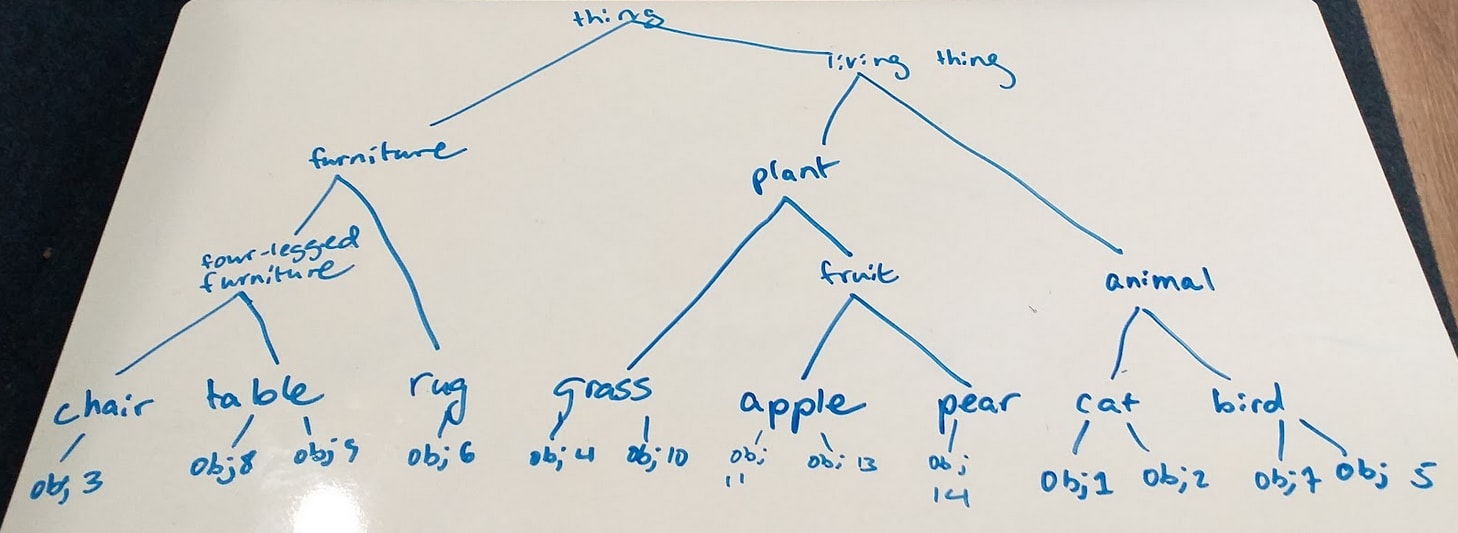 thing
living thing
furniture
plant
four-legged
furniture
fruit
animal
chair
table
rug
grass
apple
pear
cat
bird
obj 3
obj 8
obj 9
obj 6
obj 4
obj 10
obj
11
obj 13
obj
14
obj 1
obj 2
obj 7
obj 5